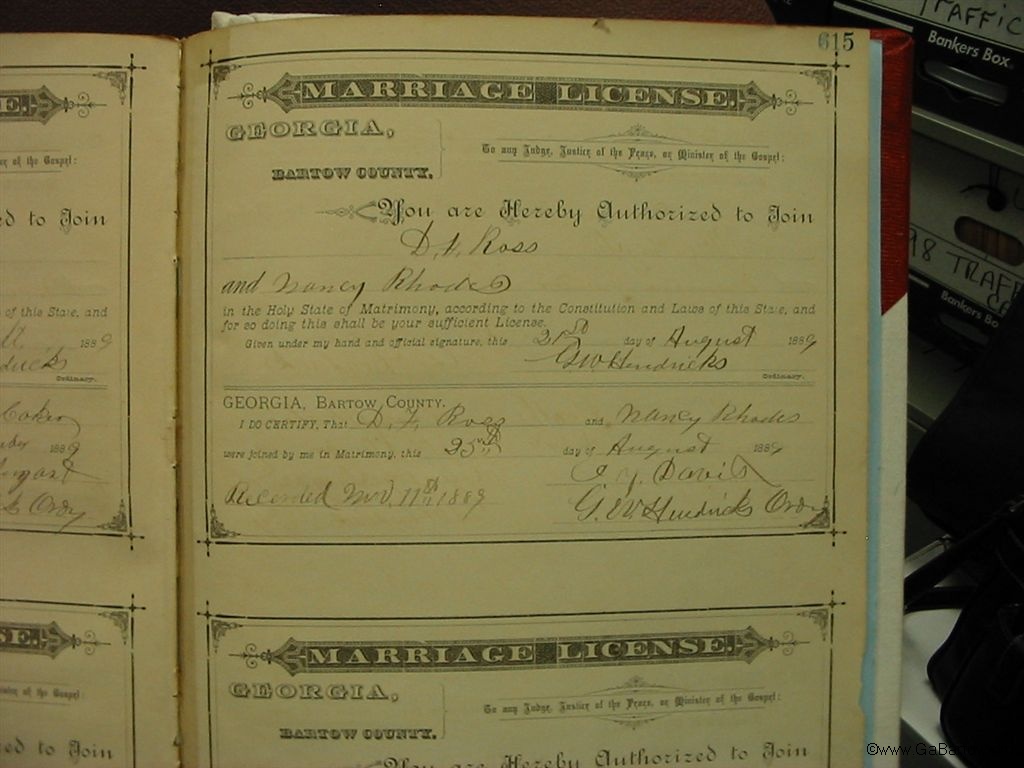 615
MARRIAGE LICENSE.
GEORGIA,
BARTOW COUNTY.
To any Judge, Justice of the Peace, or Minister of the Gospel:
You are Hereby Authorized to Join
D. F. Ross
and Nancy Rhodes
in the Holy State of Matrimony, according to the Constitution and Laws of this State, and
for so doing this shall be your sufficient License.
Given under my hand and official signature, this 21st day of August 1889
GW Hendricks
Ordinary.
GEORGIA, BARTOW COUNTY.
I DO CERTIFY, That D. F. Ross and Nancy Rhodes
were joined by me in Matrimony, this 25th day of August 1889
Davis
Recorded Nov. 11th 1889 G. W. Hendricks Ordy
MARRIAGE LICENSE.
GEORGIA,
BARTOW COUNTY.
To any Judge, Justice of the Peace, or Minister of the Gospel:
You are Hereby Authorized to Join
E.
er of the Gospel:
ed to Join
of this State, and
1889
dricks
Ordinary.
Coker
1889
Ordy
SE.
ister of the Gospel:
ed to Join
TRAFFIC
Bankers Box
98 TRAFF
Bankers Bo
©www.GaBa